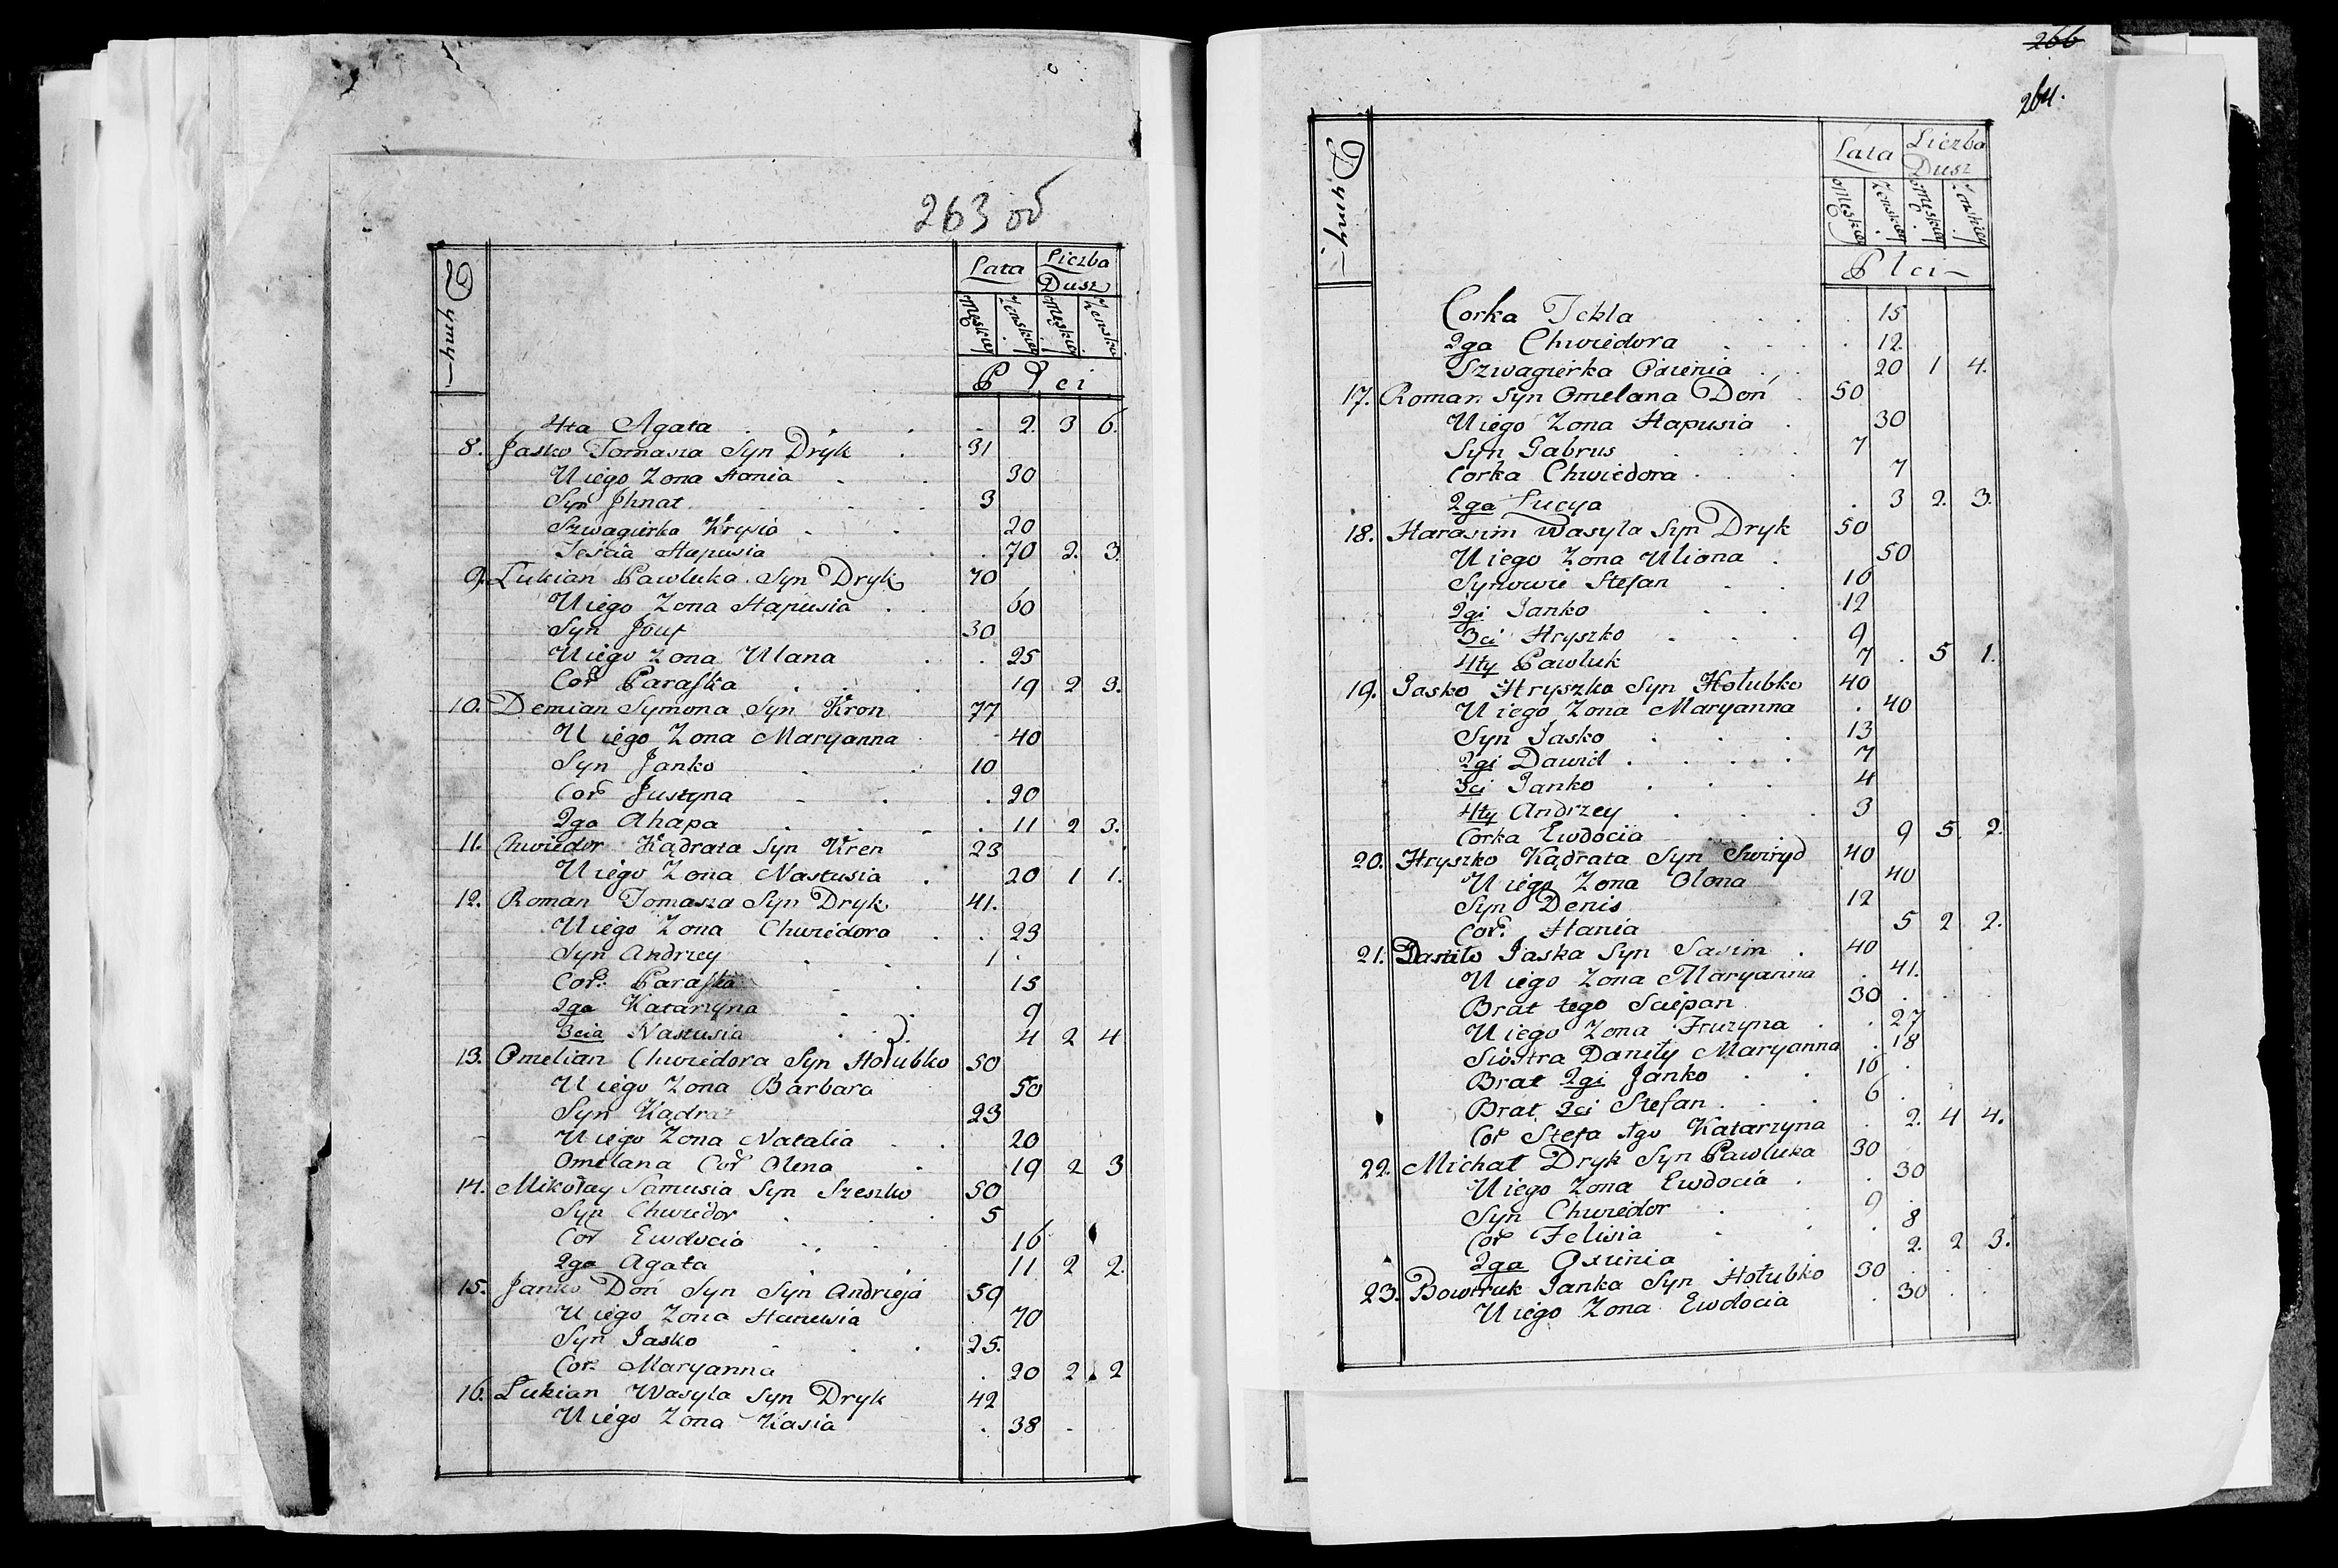 263 об
Dymy
Lata Liczba Dusz
Męskiey Żenskiey Męskiey Żenskiey
Płci
4ta Agata 2. 3 6.
8. Jasko Tomasza Syn Dryk 31
U iego Zona Hania 30
Syn Jhnat 3
Szwagierka Krysia 20
Teścia Hapusia 70 2. 3.
9. Lukian Pawluka Syn Dryk 70
U iego Zona Hapusia 60
Syn Jouf 30
U iego Zona Ulana 25
Cor Paraska 19 2 3.
10. Demian Symona Syn Kron 77
U iego Zona Maryanna 40
Syn Janko 10
Cor Justyna 20
2ga Ahapa 11 2 3.
11. Chwiedor Kądrata Syn Kren 23
U iego Zona Nastusia 20 1 1.
12. Roman Tomasza Syn Dryk 41.
U iego Zona Chwiedora 23
Syn Andrzey 1
Cor: Paraska 15
2ga Katarzyna 9
3cia Nastusia 4 2 4
13. Omelian Chwiedora Syn Hołubko 50
U iego Zona Barbara 50
Syn Kądrat 23
U iego Zona Natalia 20
Omelana Cor Olena 19 2 3
14. Mikołay Samusia Syn Szeszko 50
Syn Chwiedor 5
Cor Ewdocia 16
2ga Agata 11 2 2.
15. Janko Doń Syn Syn Andrieja 59
U iego Zona 70
Syn Jasko 25.
Cor. Maryanna 20 2 2
16. Lukian Wasyla Syn Dryk 42
U iego Zona Kasia 38
266
264.
Dymy
Lata Liczba Dusz
Męskiey Żenskiey Męskiey Żenskiey
Płci
Corka Tekla 15
2ga Chwiedora 12.
Szwagierka 20 1 4.
17. Roman Syn Omelana Doń 50
U iego Zona Hapusia 30
Syn Gabrus 7
Corka Chwiedora 7
2ga Lucya 3 2. 3.
18. Harasim Wasyla Syn Dryk 50
U iego Zona Uliona 50
Synowie Stefan 16
2gi Janko 12
3ci Hryszko 9
4ty Pawluk 7 5 1.
19. Jasko Hryszka Syn Hołubko 40
U iego Zona Maryanna 40
Syn Jasko 13
2gi Dawid 7
3ci Janko 4
4ty Andrzey 3
Corka Ewdocia 9 5. 2.
20. Hryszko Kądrata Syn Swiryd 40
U iego Zona Olona 40
Syn Denis 12
Cor. Hania 5 2 2.
21. Daniło Jaska Syn Sasim 40
U iego Zona Maryanna 41.
Brat tego Sciepan 30
U iego Zona Fruzyna 27
Siostra Daniły Maryanna 18
Brat 2gi Janko 16
Brat 2ci Stefan 6
Cor Stefa Katarzyna 2. 4 4.
22. Michał Dryk Syn Pawluka 30
U iego Zona Ewdocia 30
Syn Chwiedor 9
Cor Felisia 8
2ga Oxinia 2. 2 3.
23. Bowtruk Janka Syn Hołubko 30
U iego Zona Ewdocia 30